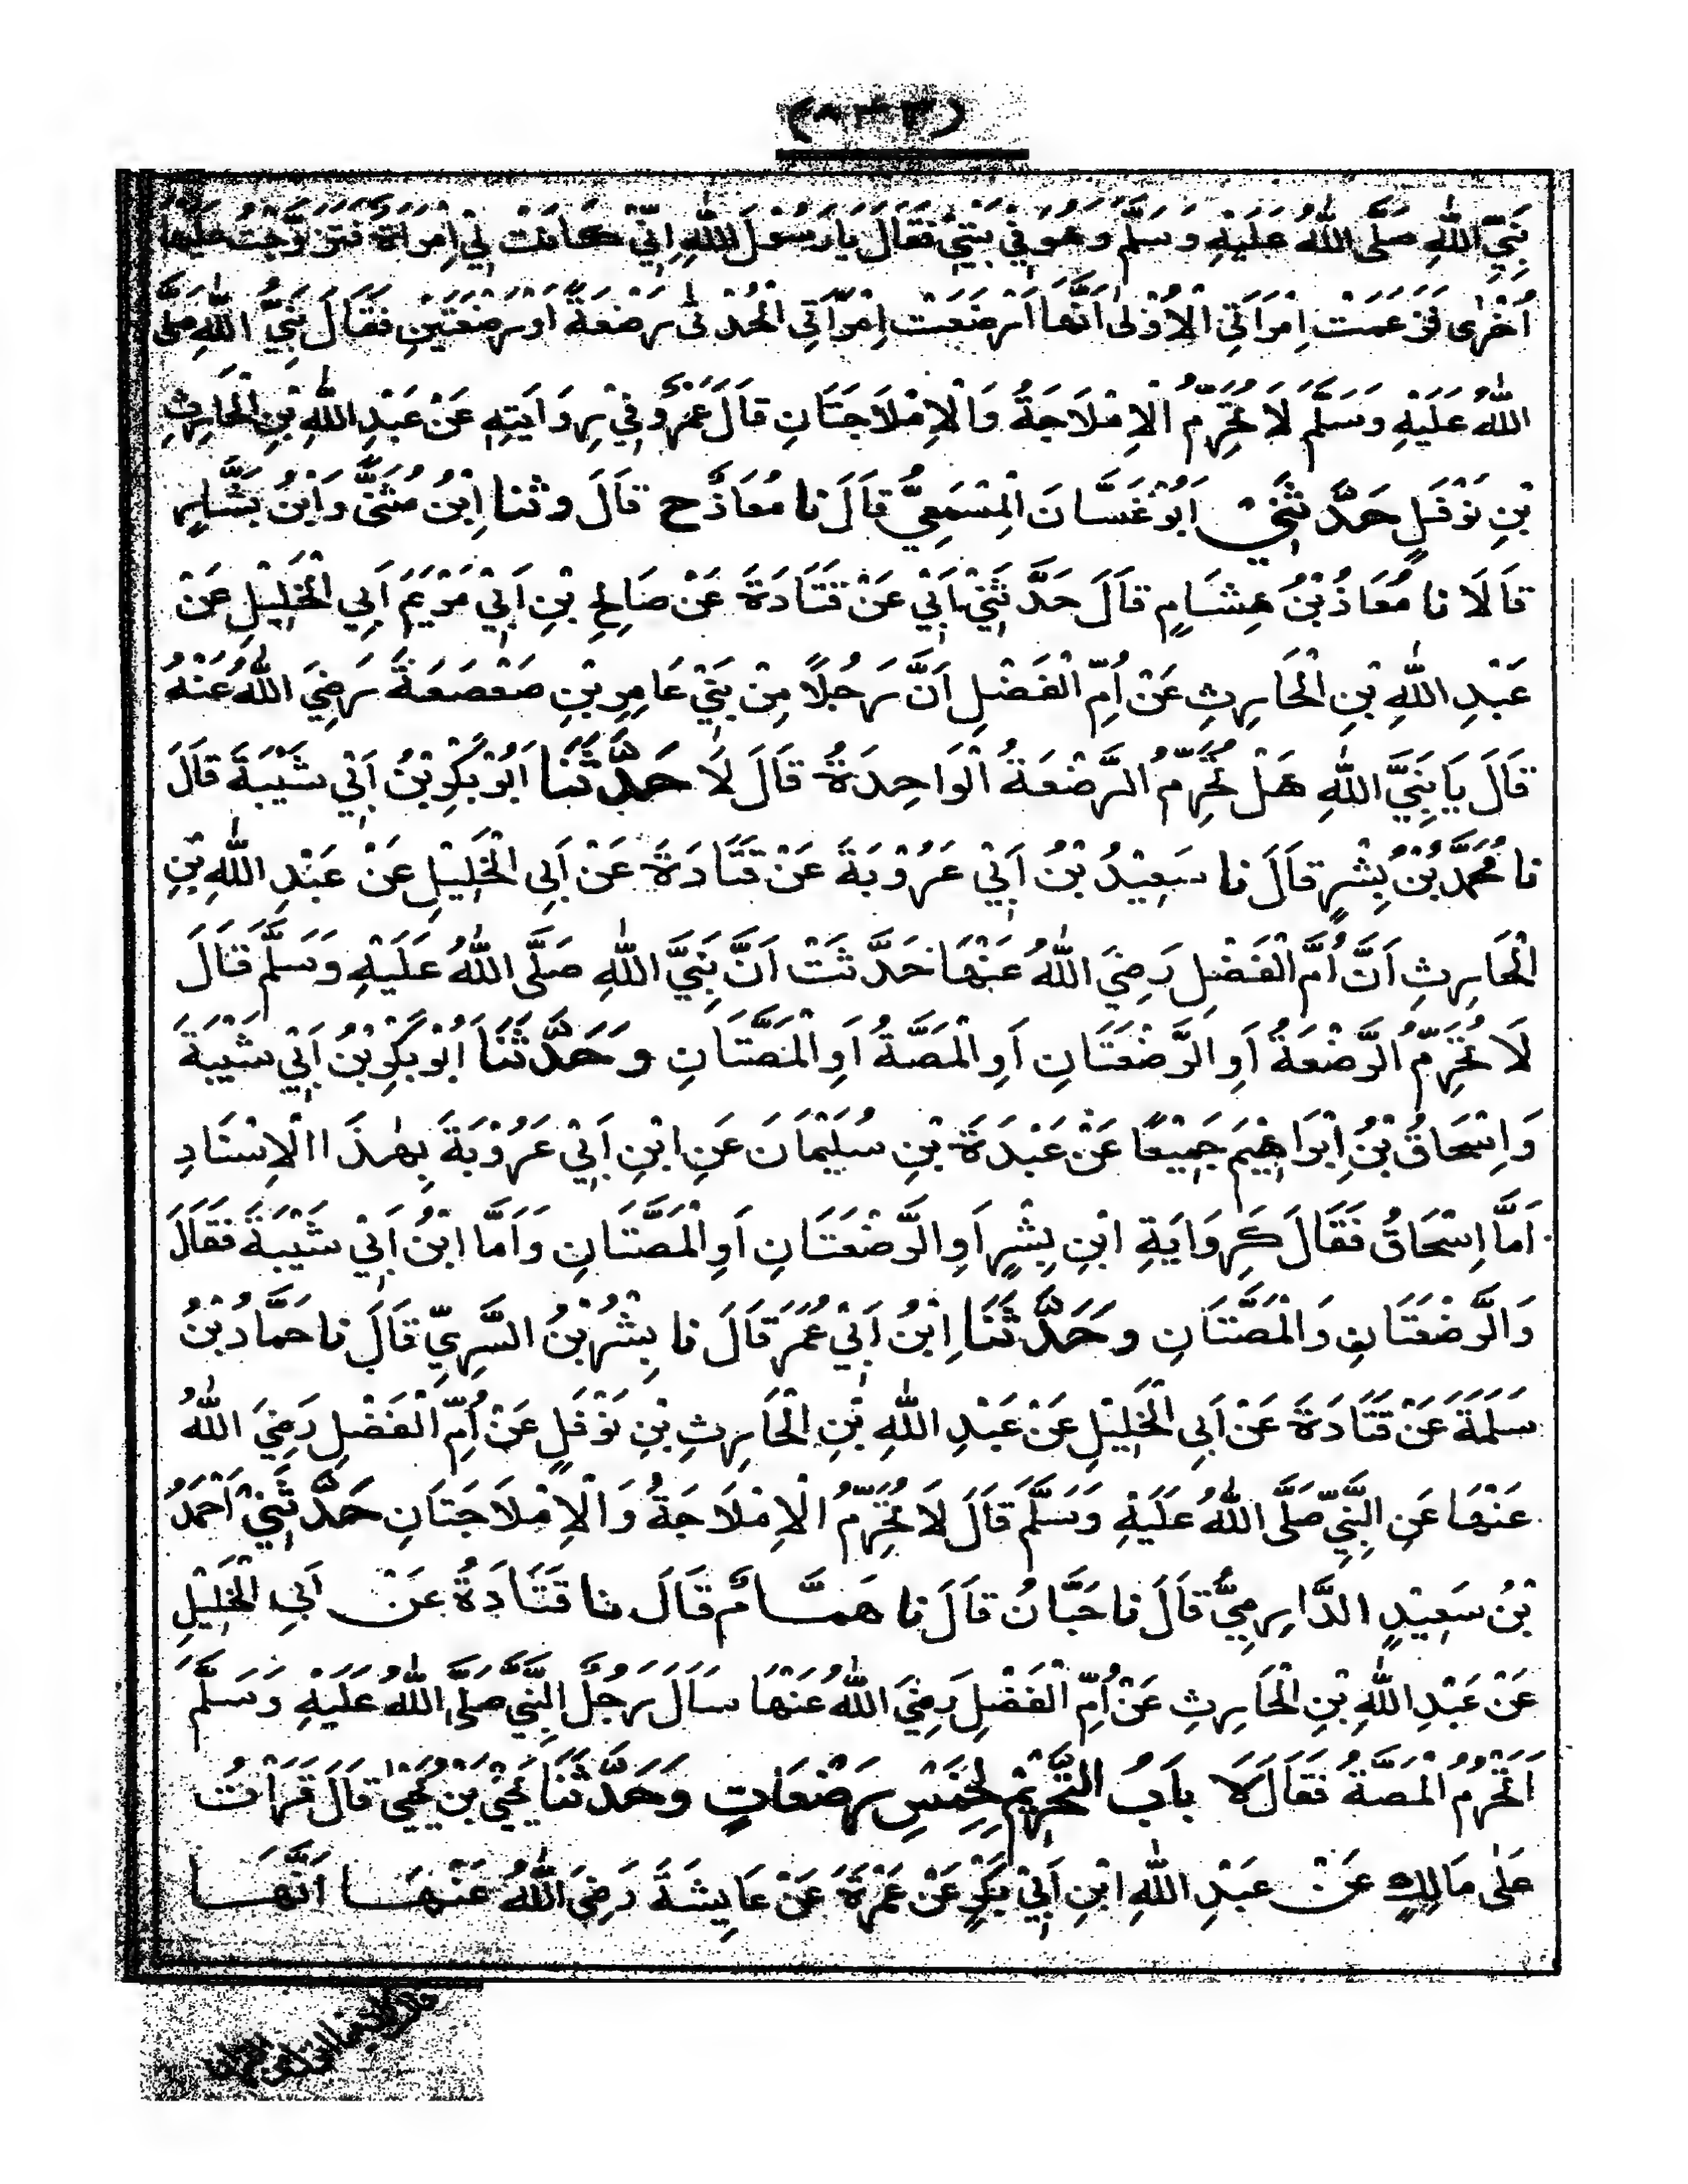 نَبِيِّ اللّٰهِ صَلَّى اللّٰهُ عَلَيْهِ وَسَلَّمَ وَهُوَ فِيْ بَيْتِيْ فَقَالَ يَا رَسُوْلَ اللّٰهِ اِنِّيْ كَانَتْ لِيْ اِمْرَاَةٌ فَتَزَوَّجْتُ عَلَيْهَا
اُخْرٰى فَزَعَمَتْ اِمْرَاَتِي الْاُوْلٰى اَنَّهَا اَرْضَعَتْ اِمْرَاَتِي الْحُدْثٰى رَضْعَةً اَوْ رَضْعَتَيْنِ فَقَالَ نَبِيُّ اللّٰهِ صَلَّى
اللّٰهُ عَلَيْهِ وَسَلَّمَ لَا تُحَرِّمُ الْاِمْلَاجَةُ وَالْاِمْلَاجَتَانِ قَالَ عَمْرٌو فِيْ رِوَايَتِهٖ عَنْ عَبْدِ اللّٰهِ بْنِ الْحَارِثِ
بْنِ نَوْفَلٍ حَدَّثَنِيْ اَبُوْ غَسَّانَ الْمِسْمَعِيُّ قَالَ نا مُعَاذٌ ح قَالَ وثنا اِبْنُ مُثَنًّى وَابْنُ بَشَّارٍ
قَالَا نا مُعَاذُ بْنُ هِشَامٍ قَالَ حَدَّثَنِيْ اَبِيْ عَنْ قَتَادَةَ عَنْ صَالِحِ بْنِ اَبِيْ مَرْيَمَ اَبِي الْخَلِيْلِ عَنْ
عَبْدِ اللّٰهِ بْنِ الْحَارِثِ عَنْ اُمِّ الْفَضْلِ اَنَّ رَجُلًا مِنْ بَنِيْ عَامِرِ بْنِ صَعْصَعَةَ رَضِيَ اللّٰهُ عَنْهُ
قَالَ يَا نَبِيَّ اللّٰهِ هَلْ تُحَرِّمُ الرَّضْعَةُ الْوَاحِدَةُ قَالَ لَا حَدَّثَنَا اَبُوْ بَكْرِ بْنُ اَبِيْ شَيْبَةَ قَالَ
نا مُحَمَّدُ بْنُ بِشْرٍ قَالَ نا سَعِيْدُ بْنُ اَبِيْ عَرُوْبَةَ عَنْ قَتَادَةَ عَنْ اَبِى الْخَلِيْلِ عَنْ عَبْدِ اللّٰهِ بْنِ
الْحَارِثِ اَنَّ اُمَّ الْفَضْلِ رَضِيَ اللّٰهُ عَنْهَا حَدَّثَتْ اَنَّ نَبِيَّ اللّٰهِ صَلَّى اللّٰهُ عَلَيْهِ وَسَلَّمَ قَالَ
لَا تُحَرِّمُ الرَّضْعَةُ اَوِ الرَّضْعَتَانِ اَوِ الْمَصَّةُ اَوِ الْمَصَّتَانِ وَحَدَّثَنَا اَبُوْ بَكْرِ بْنُ اَبِيْ شَيْبَةَ
وَاِسْحَاقُ بْنُ اِبْرَاهِيْمَ جَمِيْعًا عَنْ عَبْدَةَ بْنِ سُلَيْمَانَ عَنِ ابْنِ اَبِيْ عَرُوْبَةَ بِهٰذَا الْاِسْنَادِ
اَمَّا اِسْحَاقُ فَقَالَ كَرِوَايَةِ ابْنِ بِشْرٍ اَوِ الرَّضْعَتَانِ اَوِ الْمَصَّتَانِ وَاَمَّا ابْنُ اَبِيْ شَيْبَةَ فَقَالَ
وَالرَّضْعَتَانِ وَالْمَصَّتَانِ وَحَدَّثَنَا اِبْنُ اَبِيْ عُمَرَ قَالَ نا بِشْرُ بْنُ السَّرِيِّ قَالَ نا حَمَّادُ بْنُ
سَلَمَةَ عَنْ قَتَادَةَ عَنْ اَبِى الْخَلِيْلِ عَنْ عَبْدِ اللّٰهِ بْنِ الْحَارِثِ بْنِ نَوْفَلٍ عَنْ اُمِّ الْفَضْلِ رَضِيَ اللّٰهُ
عَنْهَا عَنِ النَّبِيِّ صَلَّى اللّٰهُ عَلَيْهِ وَسَلَّمَ قَالَ لَا تُحَرِّمُ الْاِمْلَاجَةُ وَالْاِمْلَاجَتَانِ حَدَّثَنِيْ اَحْمَدُ
بْنُ سَعِيْدٍ الدَّارِمِيُّ قَالَ نا حَبَّانُ قَالَ نا هَمَّامٌ قَالَ نا قَتَادَةُ عَنْ اَبِى الْخَلِيْلِ
عَنْ عَبْدِ اللّٰهِ بْنِ الْحَارِثِ عَنْ اُمِّ الْفَضْلِ رَضِيَ اللّٰهُ عَنْهَا سَاَلَ رَجُلٌ النَّبِيَّ صَلَّى اللّٰهُ عَلَيْهِ وَسَلَّمَ
اَتُحَرِّمُ الْمَصَّةُ فَقَالَ لَا بَابُ التَّحْرِيْمِ لِخَمْسِ رَضْعَاتٍ وَحَدَّثَنَا يَحْيَى بْنُ يَحْيٰى قَالَ قَرَأْتُ
عَلٰى مَالِكٍ عَنْ عَبْدِ اللّٰهِ ابْنِ اَبِيْ بَكْرٍ عَنْ عَمْرَةَ عَنْ عَايِشَةَ رَضِيَ اللّٰهُ عَنْهَا اَنَّهَا